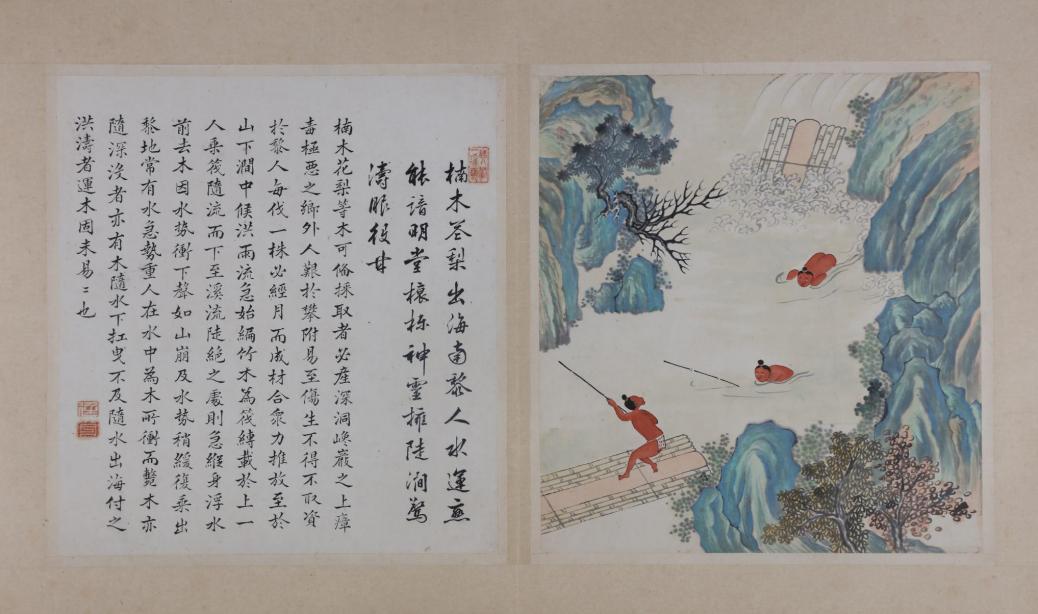 楠木花梨出海南黎人水運亟
能諳明堂榱栋神靈擁陡澗驚
濤服役甘
楠木花梨等木可偹採取者必産深洞峻巖之上瘴
毒極惡之鄉外人艱於攀附易至傷生不得不取資
於黎人每伐一株必經月而成材合衆力推放至於
山下澗中候洪雨流急始編竹木為筏縛載於上一
人乗筏隨流而下至溪流陡絶之處則急縱身浮水
前去木因水勢衝下聲如山崩及水勢稍緩復乗出
黎地常有水急勢重人在水中為木所衝而斃木亦
隨深没者亦有木隨水下扛曳不及隨水出海付之
洪濤者運木因未易〻也